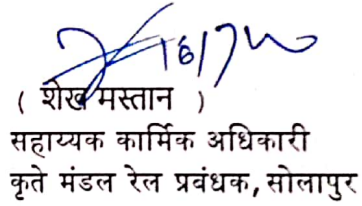 ( शेख मस्तान )
सहाय्यक कार्मिक अधिकारी
कृते मंडल रेल प्रवंधक, सोलापुर